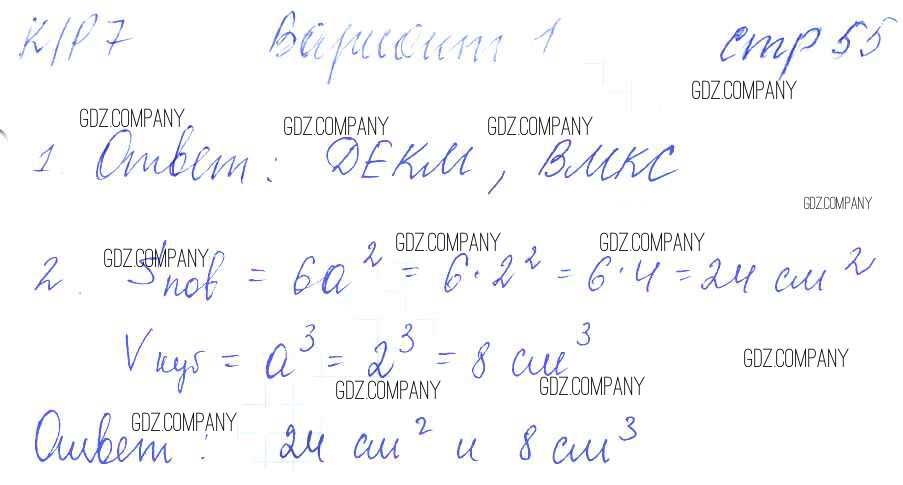 К/Р 7 Вариант 1 стр 55
GDZ.COMPANY
GDZ.COMPANY GDZ.COMPANY GDZ.COMPANY
1. Ответ: ДЕКМ, ВМКС
GDZ.COMPANY
GDZ.COMPANY GDZ.COMPANY GDZ.COMPANY
2. Sпов = 6a² = 6·2² = 6·4 = 24 см²
Vкуб = a³ = 2³ = 8 см³
GDZ.COMPANY
GDZ.COMPANY GDZ.COMPANY
GDZ.COMPANY
Ответ: 24 см² и 8 см³